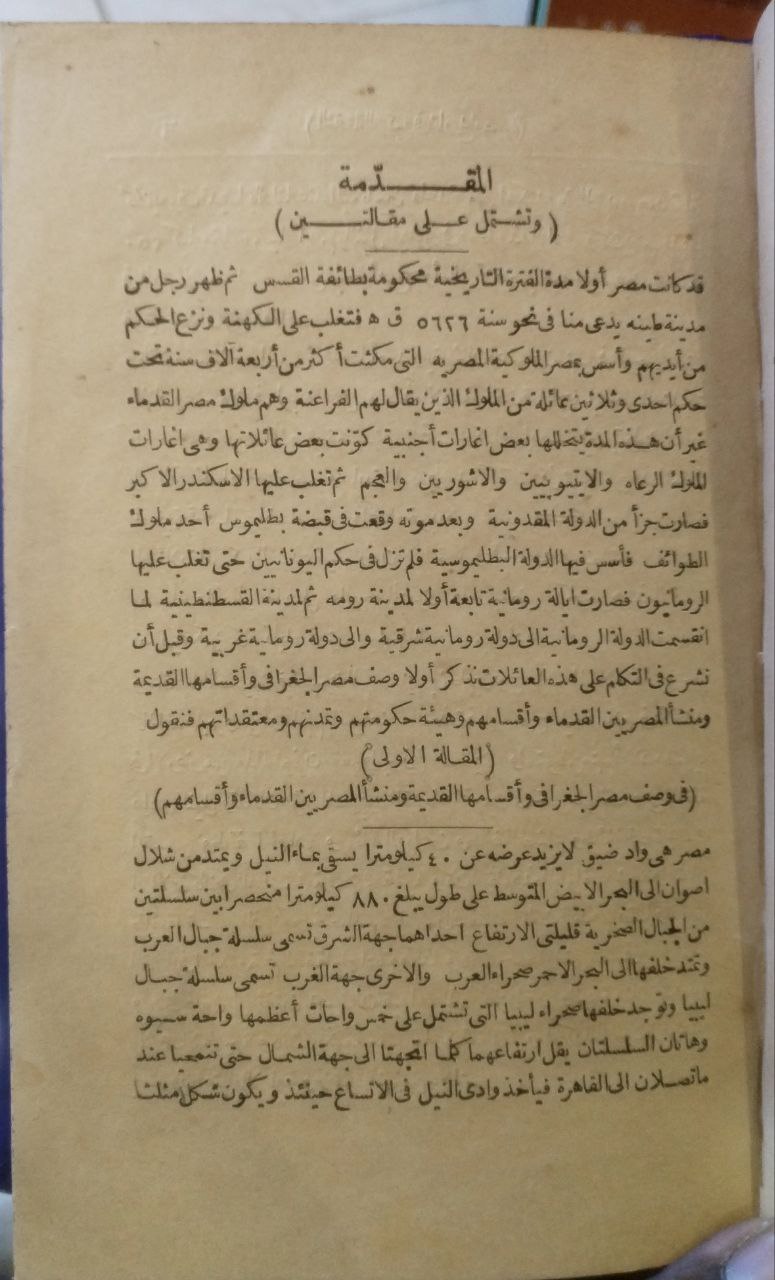 المقدّمة
(وتشتمل على مقالتين)
قد كانت مصر أولا مدة الفترة التاريخية محكومة بطائفة القسس ثم ظهر رجل من
مدينة طينه يدعى منا فى نحو سنة ٥٦٢٦ ق ه فتغلب على الكهنة ونزع الحكم
من أيديهم وأسس بمصر الملوكية المصريه التى مكثت أكثر من أربعة آلاف سنة تحت
حكم احدى وثلاثين عائلة من الملوك الذين يقال لهم الفراعنة وهم ملوك مصر القدماء
غير أن هذه المدة يتخللها بعض اغارات أجنبية كوّنت بعض عائلاتها وهى اغارات
الملوك الرعاه والايتيوبيين والاشوريين والعجم ثم تغلب عليها الاسكندر الاكبر
فصارت جزأ من الدولة المقدونية وبعد موته وقعت فى قبضة بطليموس أحد ملوك
الطوائف فأسس فيها الدولة البطليموسية فلم تزل فى حكم اليونانيين حتى تغلب عليها
الرومانيون فصارت ايالة رومانية تابعة أولا لمدينة رومه ثم لمدينة القسطنطينية لما
انقسمت الدولة الرومانية الى دولة رومانية شرقية والى دولة رومانية غربية وقبل أن
نشرع فى التكلم على هذه العائلات نذكر أولا وصف مصر الجغرافى وأقسامها القديمة
ومنشأ المصريين القدماء وأقسامهم وهيئة حكومتهم وتمدنهم ومعتقداتهم فنقول
(المقالة الاولى)
(فى وصف مصر الجغرافى وأقسامها القديمة ومنشأ المصريين القدماء وأقسامهم)
مصر هى واد ضيق لا يزيد عرضه عن ٤٠ كيلومترا يسقى بماء النيل ويمتد من شلال
اصوان الى البحر الابيض المتوسط على طول يبلغ ٨٨٠ كيلومترا منحصرا بين سلسلتين
من الجبال الصخرية قليلتى الارتفاع احداهما جهة الشرق تسمى سلسلة جبال العرب
وتمتد خلفها الى البحر الاحمر صحراء العرب والاخرى جهة الغرب تسمى سلسلة جبال
ليبيا وتوجد خلفها صحراء ليبيا التى تشتمل على خمس واحات أعظمها واحة سيوه
وهاتان السلسلتان يقل ارتفاعهما كلما اتجهتا الى جهة الشمال حتى تنمعيا عند
ما تصلان الى القاهرة فيأخذ وادى النيل فى الاتساع حينئذ ويكون شكله مثلثا